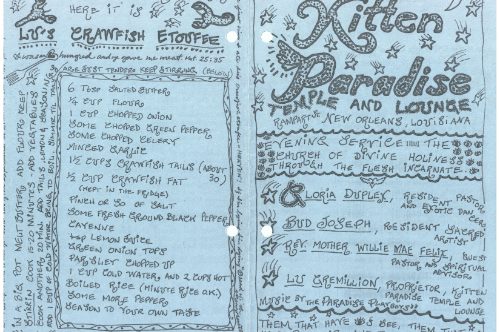 HERE IT IS
LU'S CRAWFISH ETOUFFEE
hungred and ye gave me meat. Mat 25:35
KEEP STIRRING (BELOW)
6 TBSP SALTED BUTTER
¼ CUP FLOUR
1 CUP CHOPPED ONION
SOME CHOPPED GREEN PEPPER
SOME CHOPPED CELERY
MINCED GARLIC
1½ CUPS CRAWFISH TAILS (ABOUT 30)
½ CUP CRAWFISH FAT
(KEPT IN THE FRIDGE)
PINCH OR SO OF SALT
SOME FRESH GROUND BLACK PEPPER
CAYENNE
1 tsp LEMON JUICE
GREEN ONION TOPS
PARSLEY CHOPPED UP
1 CUP COLD WATER, AND 2 CUPS HOT
BOILED RICE (MINUTE RICE OK)
SOME MORE PEPPER
SEASON TO YOUR OWN TASTE
IN A BIG POT MELT BUTTER, ADD FLOUR, KEEP
STIRRING. COOK 15-20 MINUTES. ADD VEGETABLES
COOK ANOTHER 20 MIN. ADD TAILS LEMON & SEASON.
ADD 1 CUP OF COLD WATER, BRING TO BOIL. SIMMER TIL TAILS
Kitten
Paradise
TEMPLE AND LOUNGE
RAMPARTS NEW ORLEANS, LOUISIANA
EVENING SERVICE THE
CHURCH OF DIVINE HOLINESS
THROUGH THE FLESH INCARNATE.
GLORIA DUPLEX, RESIDENT PASTOR,
AND EXOTIC DANCER
BUD JOSEPH, RESIDENT SACRED
ARTIST
REV. MOTHER WILLIE MAE FELIX, GUEST
PASTOR AND SPIRITUAL
ADVISOR
LU GREMILLION, PROPRIETOR, KITTEN
PARADISE TEMPLE AND
LOUNGE
MUSIC BY THE PARADISE PLAYBOYS
THEM THAT HAVE SEE, THEM